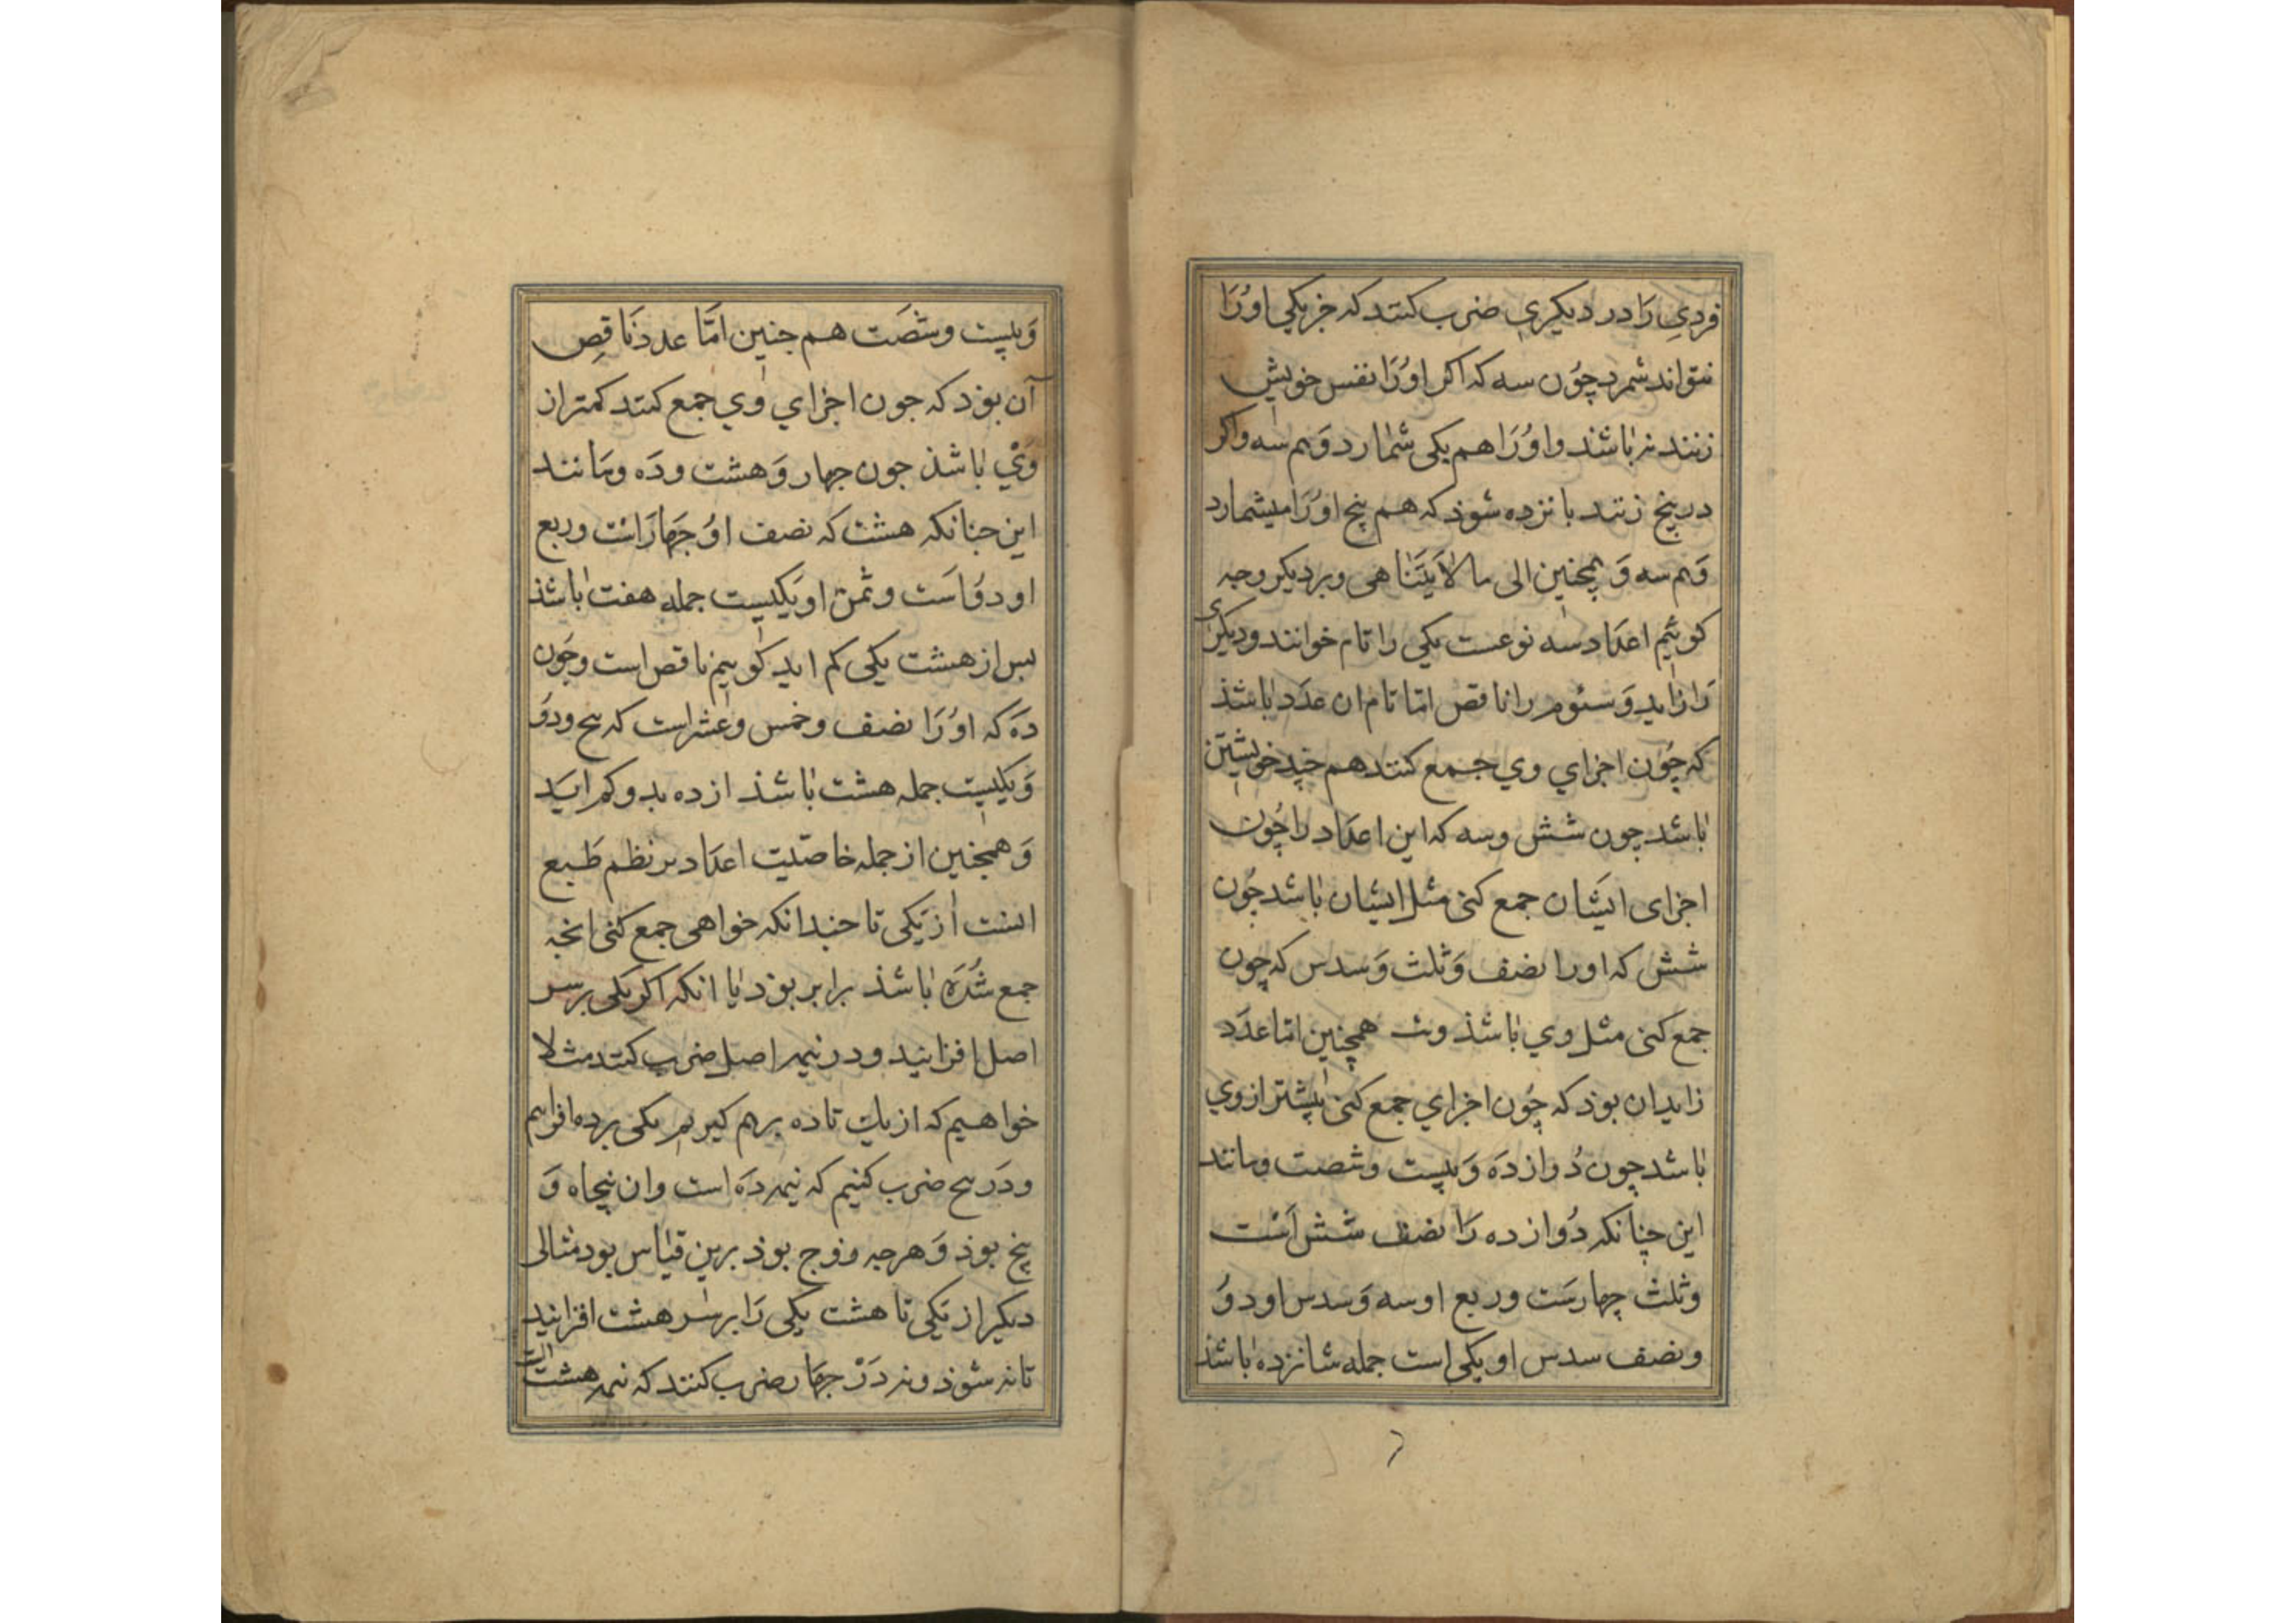 فردی رَا در دیکری ضرب کنند که جز یکی اوُرَا
نتواند شمرد چوُن سه که اکر اوُرَا نفس خویش
زنند نه باشد واوُرَا هم یکی شمارد وَهم سه واکر
در پنج زنند بانزده شوذ که هم پنج اوُرَا میشمارد
وَهم سه وَهمچنین الی مالاَیتَنَاهی وبر دیکر وجه
کوئیم اعدَاد سه نوعست یکی را تام خوانند ودیکری
رَا زاید وَسئوم را ناقص امّا تام ان عدَد باشذ
که چوُن اجزاي وي جمع کنند هم چند خویشتن
باشد چون شش وسه که این اعدَاد را چوُن
اجزای ایشَان جمع کنی مثل ایشان باشد چوُن
شش که اورا نصف وَثلث وَسدس که چون
جمع کنی مثل وي باشذ وسه همچنین امّا عدَد
زاید ان بوذ که چوُن اجزاي جمع کنی بیشتر از وي
باشد چون دُوازدَه وَبیست وشصت ومانند
این چنانکه دُوازده رَا نصف شش اَست
وثلث چهارسَت وربع او سه وَسدس او دوُ
ونصف سدس او یکی است جمله شانزده باشذ
وَبیست وشصَت هم جنین امّا عدد نَاقِص
آن بوذ که جون اجزاي وي جمع کنند کمتر از
وَيْ باشذ جون جهار وَهشت ودَه ومانند
این جنانکه هشت که نصف اوُ جَهارَاست وربع
او دوُاسَت وثمن او یَکیست جمله هفت باشذ
بس از هشت یکی کم اید کوییم ناقص است وجَون
دَه که اوُرَا نصف وخمس وعُشر است که پنج ودوُ
وَیکیست جمله هشت باشذ از ده بدو کم ایَد
وَهمجنین از جمله خاصّیت اعدَاد بر نظم طَبع
اینست از یَکی تا جندانکه خواهی جمع کنی انجه
جمع شُدَه باشذ برابر بوذ با انکه اکر یکی بر سر
اصل افزایید ودر نیمه اصل ضرب کنند مثلا
خواهیم که از یك تا ده برهم کیریم یکی برده افزاییم
ودَر پنج ضرب کنیم که نیمه دَه است وان پنجاه وَ
پنج بوذ وَهرجه زوج بوذ برین قیاس بود مثالی
دیکر از یَکی تا هشت یکی رَا بر سر هشت افزایید
تا نه شوذ ونه دَرْ جهَار ضرب کنند که نیمه هشت است